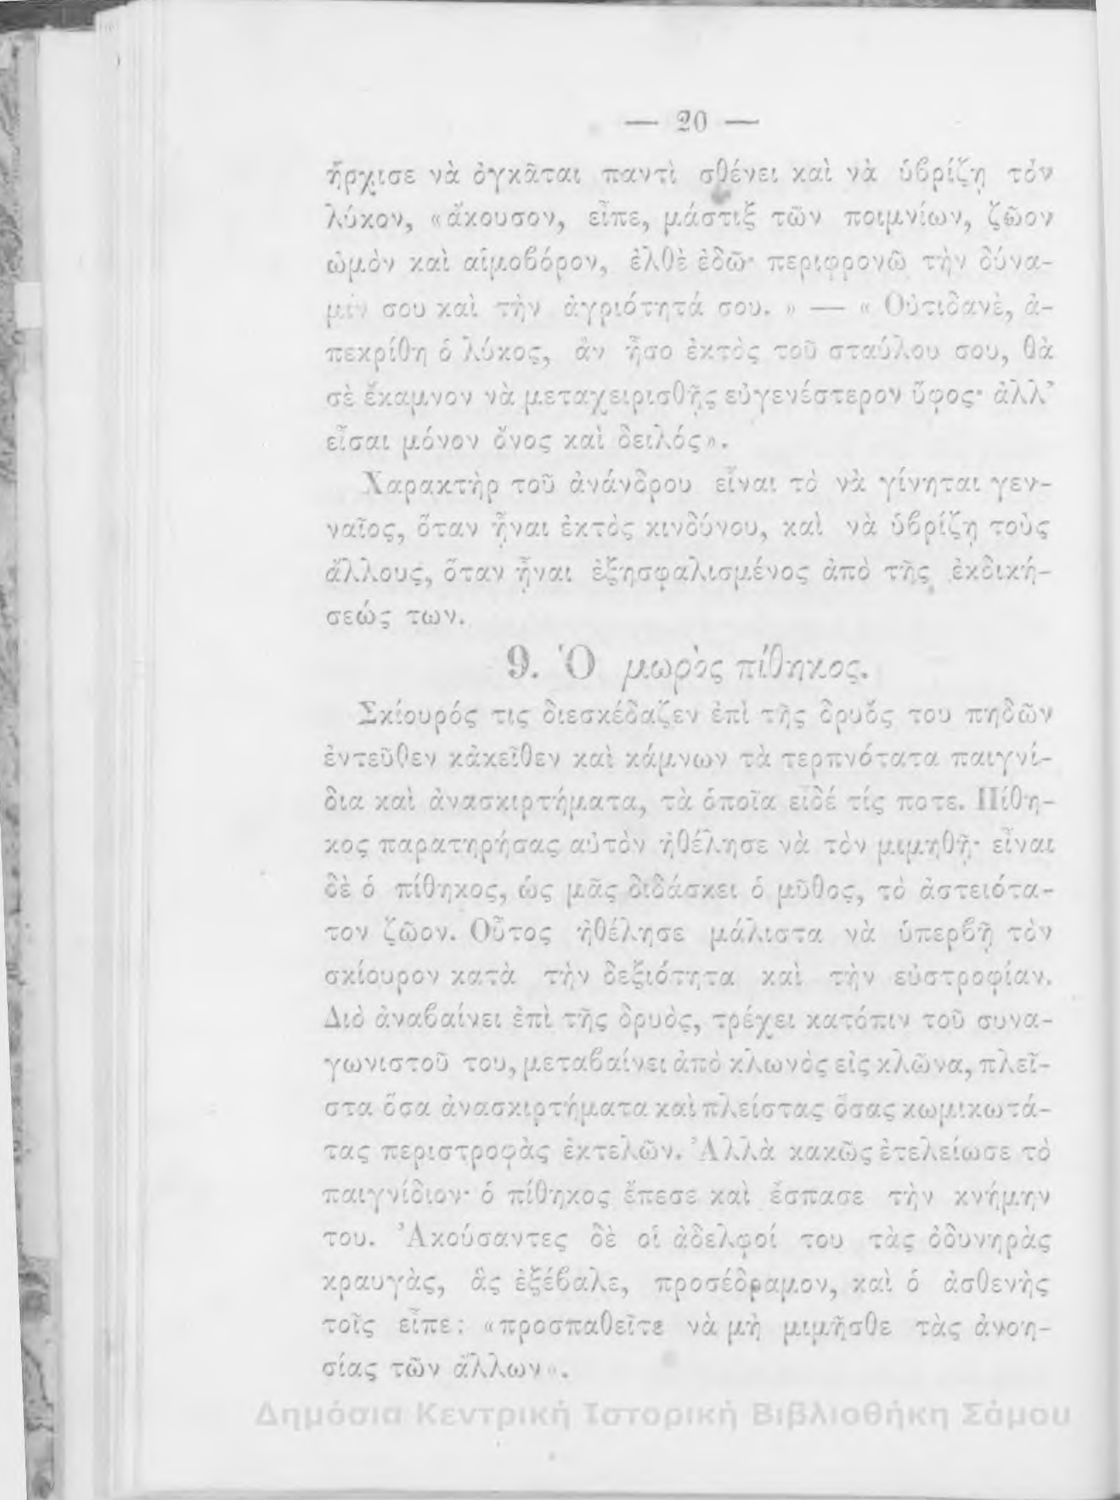 — 20 —
ἤρχισε νὰ ὀγκᾶται παντὶ σθένει καὶ νὰ ὑβρίζῃ τὸν
λύκον, «ἄκουσον, εἶπε, μάστιξ τῶν ποιμνίων, ζῶον
ὠμὸν καὶ αἱμοβόρον, ἐλθὲ ἐδῶ· περιφρονῶ τὴν δύνα-
μίν σου καὶ τὴν ἀγριότητά σου.» — «Οὐτιδανὲ, ἀ-
πεκρίθη ὁ λύκος, ἂν ἦσο ἐκτὸς τοῦ σταύλου σου, θὰ
σὲ ἔκαμνον νὰ μεταχειρισθῇς εὐγενέστερον ὕφος· ἀλλ’
εἶσαι μόνον ὄνος καὶ δειλός».
Χαρακτὴρ τοῦ ἀνάνδρου εἶναι τὸ νὰ γίνηται γεν-
ναῖος, ὅταν ἦναι ἐκτὸς κινδύνου, καὶ νὰ ὑβρίζῃ τοὺς
ἄλλους, ὅταν ἦναι ἐξησφαλισμένος ἀπὸ τῆς ἐκδική-
σεώς των.
9. Ὁ μωρὸς πίθηκος.
Σκίουρός τις διεσκέδαζεν ἐπὶ τῆς δρυός του πηδῶν
ἐντεῦθεν κἀκεῖθεν καὶ κάμνων τὰ τερπνότατα παιγνί-
δια καὶ ἀνασκιρτήματα, τὰ ὁποῖα εἶδέ τίς ποτε. Πίθη-
κος παρατηρήσας αὐτὸν ἠθέλησε νὰ τὸν μιμηθῇ· εἶναι
δὲ ὁ πίθηκος, ὡς μᾶς διδάσκει ὁ μῦθος, τὸ ἀστειότα-
τον ζῶον. Οὗτος ἠθέλησε μάλιστα νὰ ὑπερβῇ τὸν
σκίουρον κατὰ τὴν δεξιότητα καὶ τὴν εὐστροφίαν.
Διὸ ἀναβαίνει ἐπὶ τῆς δρυὸς, τρέχει κατόπιν τοῦ συνα-
γωνιστοῦ του, μεταβαίνει ἀπὸ κλωνὸς εἰς κλῶνα, πλεῖ-
στα ὅσα ἀνασκιρτήματα καὶ πλείστας ὅσας κωμικωτά-
τας περιστροφὰς ἐκτελῶν. Ἀλλὰ κακῶς ἐτελείωσε τὸ
παιγνίδιον· ὁ πίθηκος ἔπεσε καὶ ἔσπασε τὴν κνήμην
του. Ἀκούσαντες δὲ οἱ ἀδελφοί του τὰς ὀδυνηρὰς
κραυγὰς, ἃς ἐξέβαλε, προσέδραμον, καὶ ὁ ἀσθενὴς
τοῖς εἶπε: «προσπαθεῖτε νὰ μὴ μιμῆσθε τὰς ἀνοη-
σίας τῶν ἄλλων».
Δημόσια Κεντρική Ιστορική Βιβλιοθήκη Σάμου